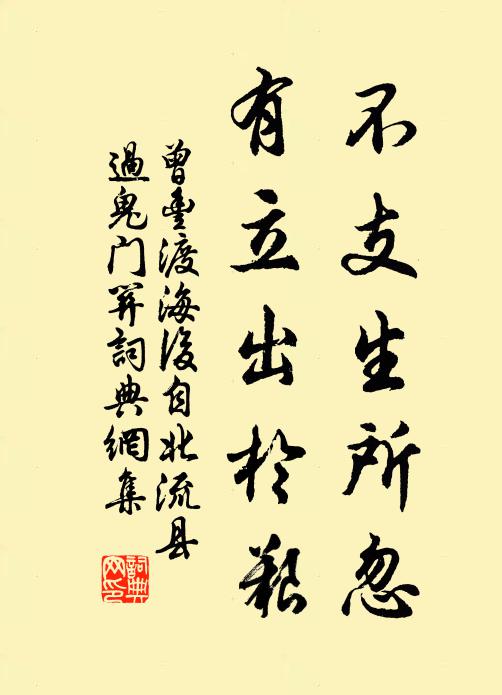 不支生所忽
有立出於艱
曾豐渡海後自北流县
過鬼门关詞典網集
詞典网印